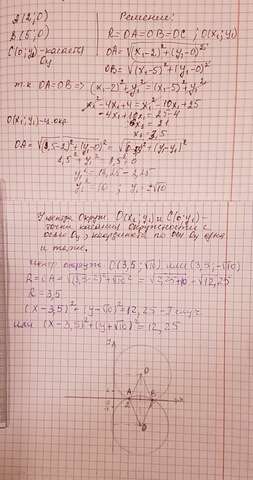 A(2;0)
B(5;0)
C(0;y)-касат
Oy
Решение:
R = OA=OB=OC ; O(x₁;y₁)
OA = √(x₁-2)²+(y₁-0)²
OB = √(x₁-5)²+(y₁-0)²
т.к OA=OB => (x₁-2)²+y₁² = (x₁-5)²+y₁²
x₁²-4x₁+4 = x₁²-10x₁+25
-4x₁+10x₁ = 25-4
6x₁ = 21
x₁ = 3,5
O(x₁;y₁)-ц.окр
OA = √(3,5-2)²+(y₁-0)² =
1,5²+y₁² = 3,5²+0
y₁² = 12,25-2,25
y₁² = 10 ; y₁ = ±√10
У центра окруж O(x₁;y₁) и C(0;y₁)-
точки касания окружности с
осью Oy, координата по оси Oy одна
и та же.
Центр окружн O(3,5;√10) или (3,5;-√10)
R = OA = √(3,5-2)²+√10² = √2,25+10 = √12,25
R = 3,5
(x-3,5)²+(y-√10)² = 12,25
или (x-3,5)²+(y+√10)² = 12,25
A
B
O